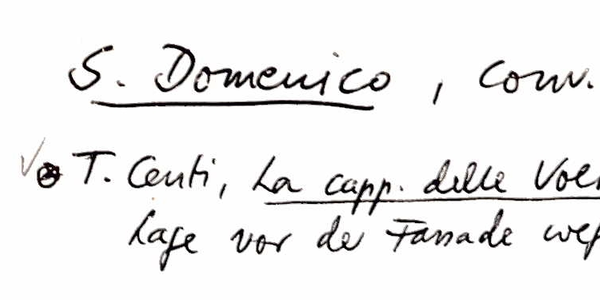 S. Domenico, conv.
T. Centi, La capp. delle
Lage vor der Fassade